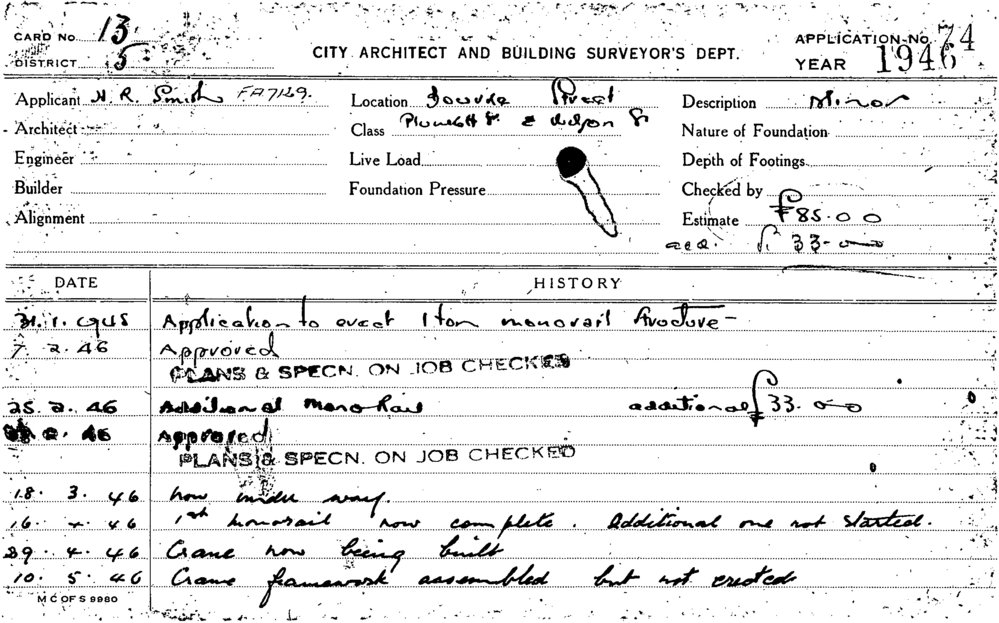 CARD No. 13
DISTRICT 5
CITY ARCHITECT AND BUILDING SURVEYOR'S DEPT.
APPLICATION No. 74
YEAR 1946
Applicant H. R. Smith FA7129.
Location Street
Description Minor
Architect
Class Plunkett St. &
Nature of Foundation
Engineer
Live Load
Depth of Footings
Builder
Foundation Pressure
Checked by
Alignment
Estimate £85.0 0
add. £33-0-0
DATE HISTORY
31. 1. Application to erect 1 ton monorail structure-
7 2. 46 Approved
PLANS & SPECN. ON JOB CHECKED
25. 2. 46 Additional Mono Rail additional £33.0-0
2. 46 Approved
PLANS & SPECN. ON JOB CHECKED
18. 3. 46 now under way.
16. 4. 46 1st monorail now complete. Additional one not started.
29. 4. 46 Crane now being built
10. 5. 46 Crane framework assembled but not erected
M C OF S 9980